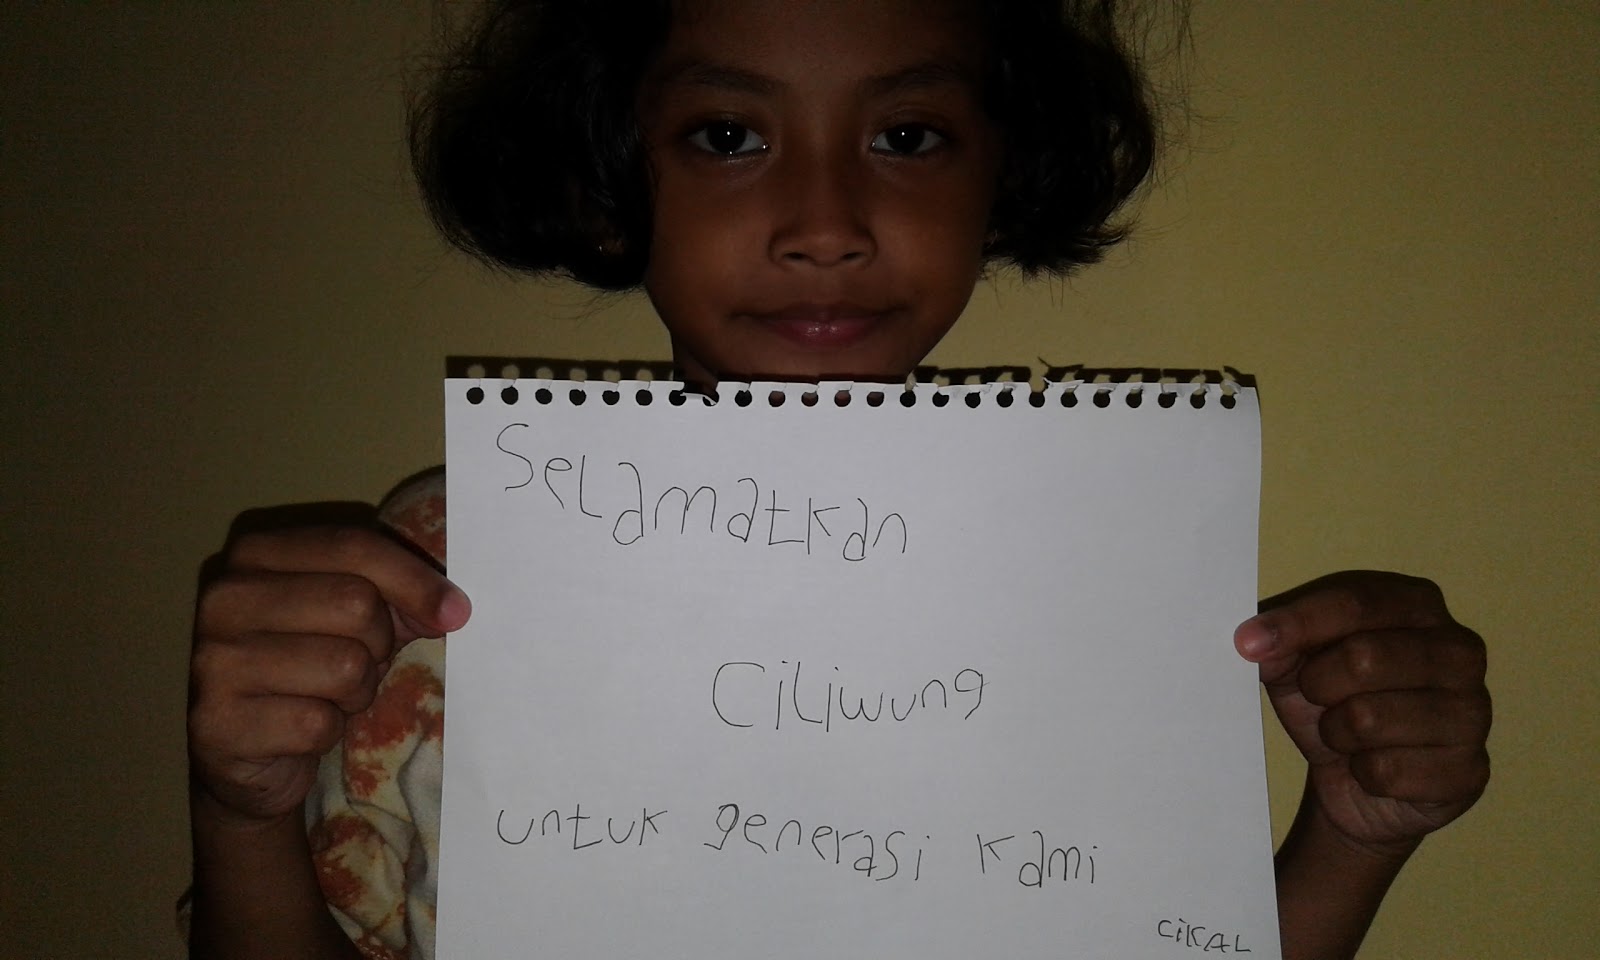 Selamatkan
Ciliwung
untuk generasi kami
CiKAL